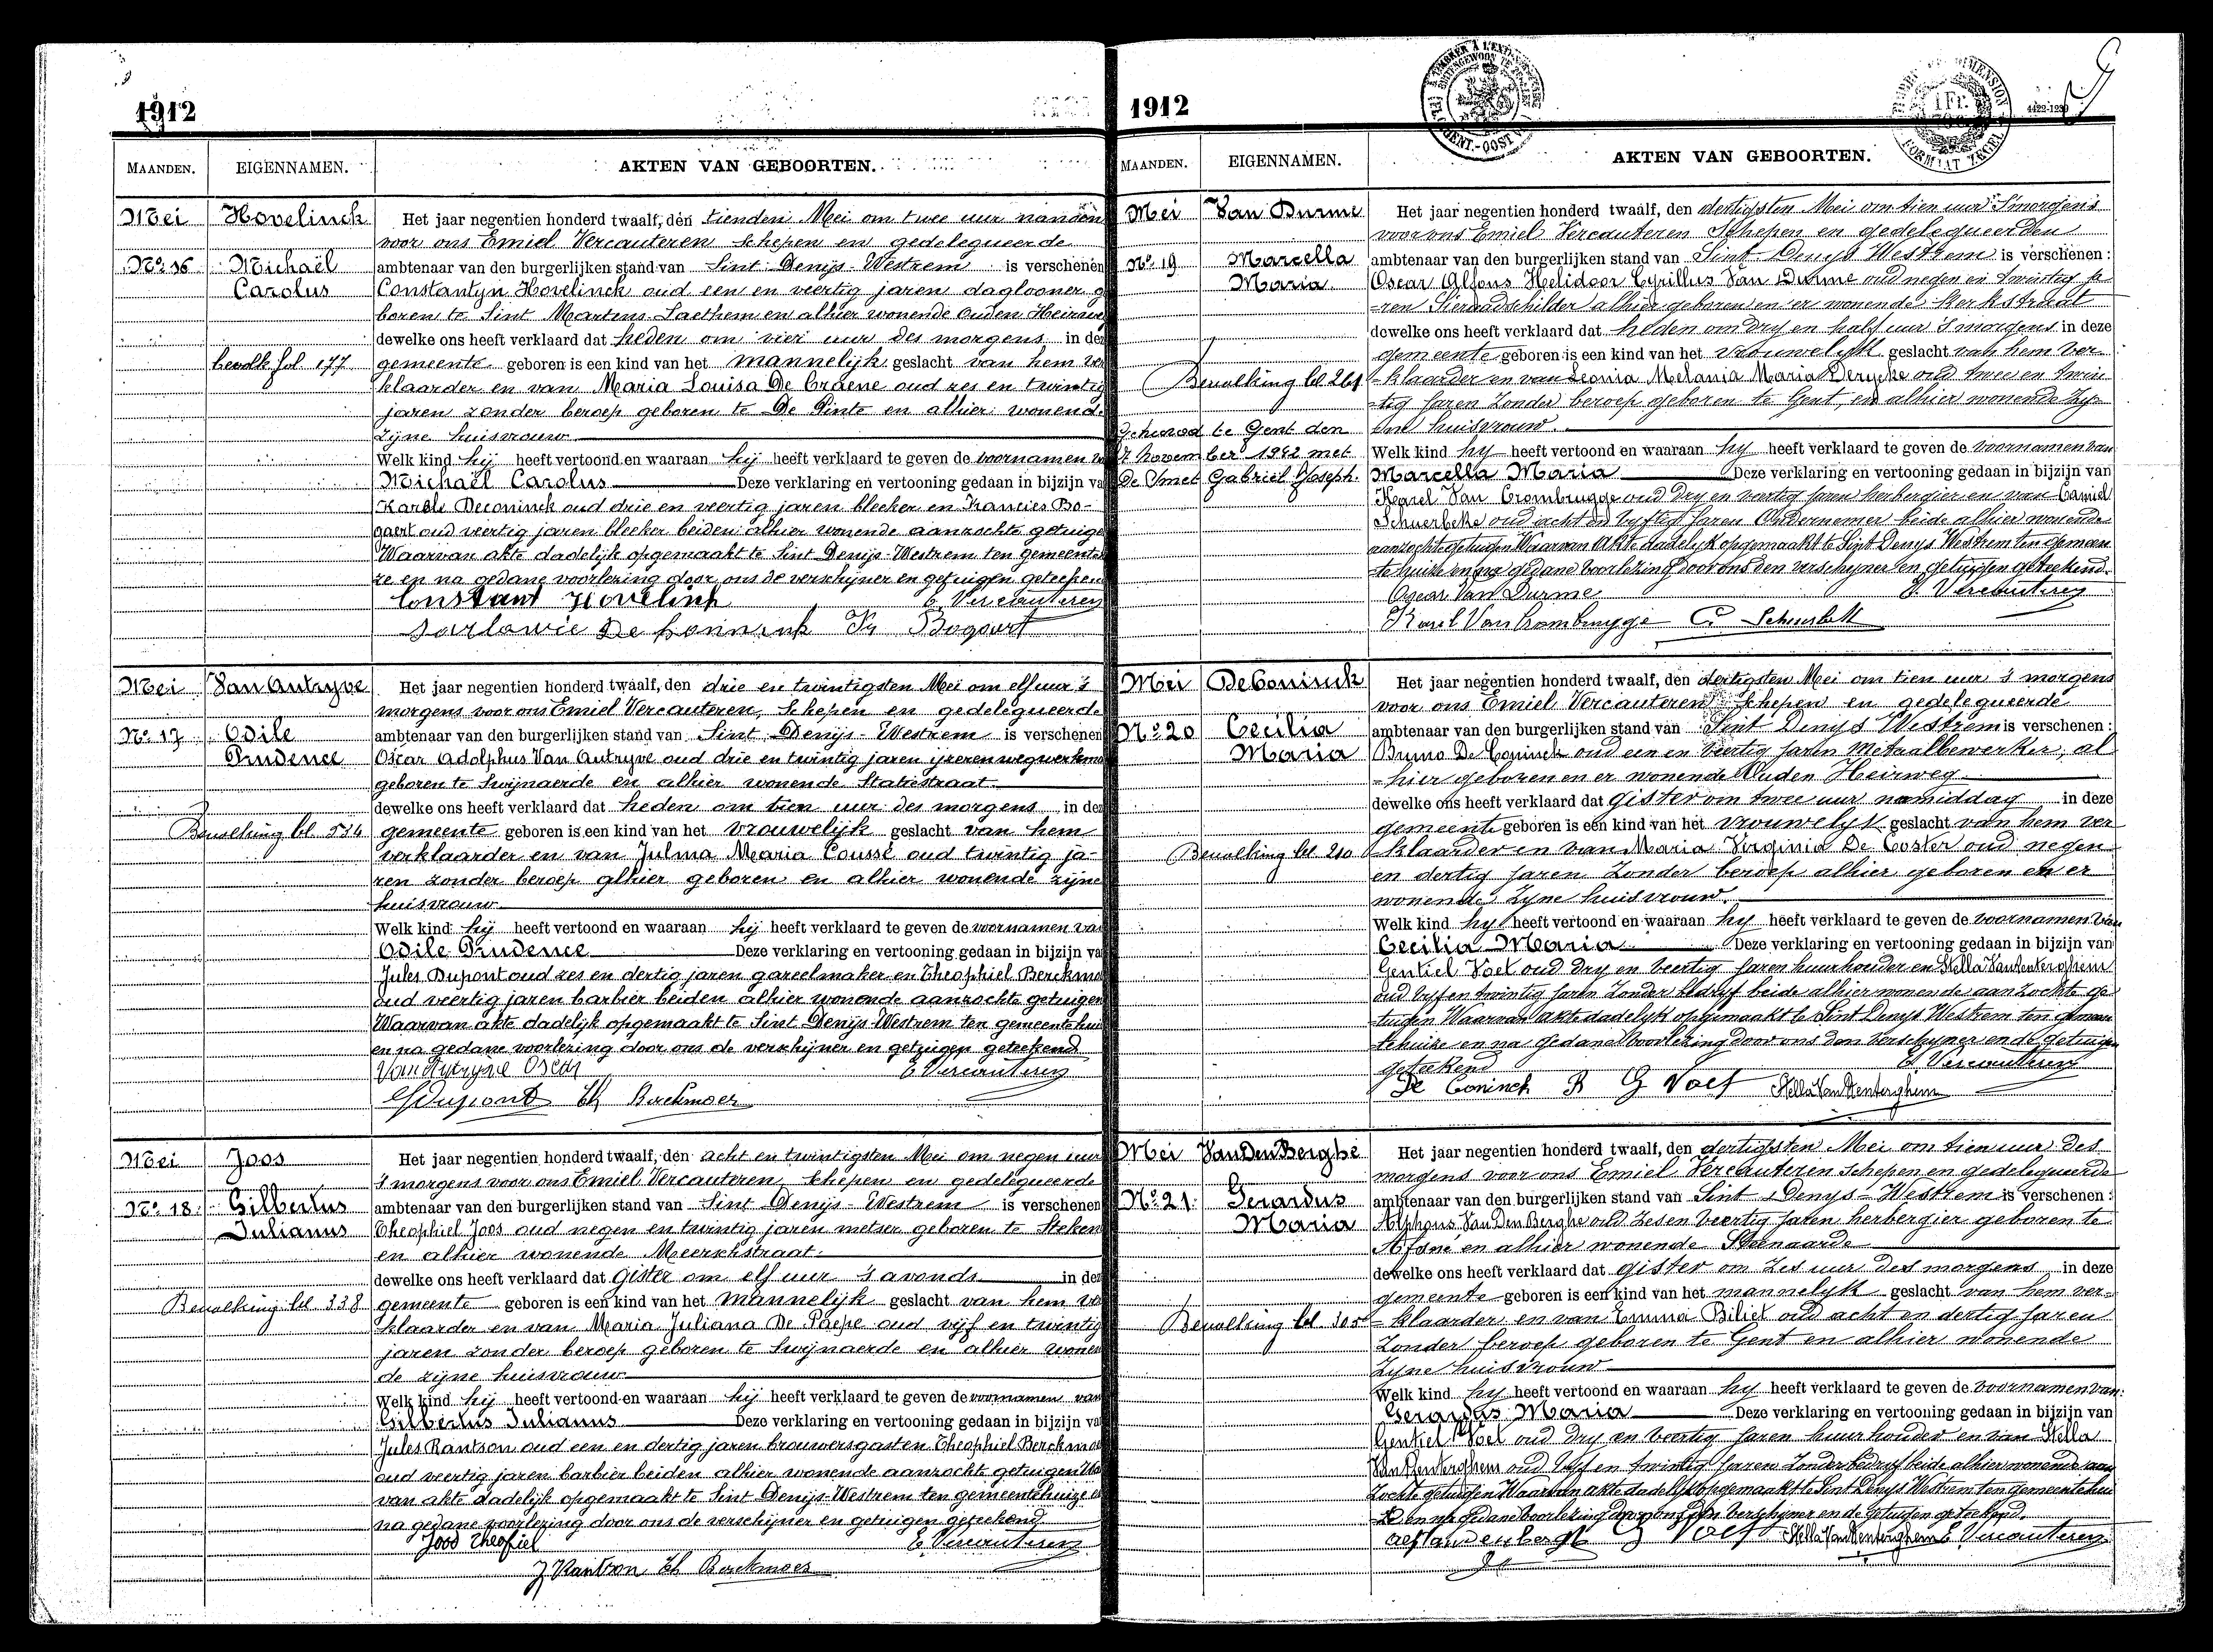 1912
MAANDEN. EIGENNAMEN. AKTEN VAN GEBOORTEN.
Mei Hovelinck Het jaar negentien honderd twaalf, den tienden Mei om twee uur nanoen
voor ons Emiel Vercauteren schepen en gedelegueerde
No. 16 Michaël ambtenaar van den burgerlijken stand van Sint Denijs-Westrem is verschenen
Carolus Constantyn Hovelinck oud een en veertig jaren daglooner g
boren te Sint Martens Laethem en alhier wonende Ouden Heirweg
dewelke ons heeft verklaard dat heden om vier uur des morgens in de
bevolk fol. 177 gemeente geboren is een kind van het mannelijk geslacht van hem ver
klaarder en van Maria Louisa De Craene oud zes en twintig
jaren zonder beroep geboren te De Pinte en alhier wonend
zijne huisvrouw
Welk kind hij heeft vertoond en waaraan hij heeft verklaard te geven de voornamen v
Michaël Carolus Deze verklaring en vertooning gedaan in bijzijn va
Karele Deconinck oud drie en veertig jaren bleeker en Francies Bo-
gaert oud veertig jaren bleeker beiden alhier wonende aanzochte getuige
Waarvan akte dadelijk opgemaakt te Sint Denijs-Westrem ten gemeente
ze en na gedane voorlezing door ons de verschijner en getuigen geteeken
Constant Hovelinck E. Vercauteren
De Coninck Fr Bogaert
Mei Van Autryve Het jaar negentien honderd twaalf, den drie en twintigsten Mei om elf uur 's
morgens voor ons Emiel Vercauteren, schepen en gedelegueerde
No. 17 Odile ambtenaar van den burgerlijken stand van Sint Denijs-Westrem is verschenen
Prudence Oscar Adolphus Van Autryve oud drie en twintig jaren ijzerenwegwerkma
geboren te Swijnaerde en alhier wonende Statiestraat
dewelke ons heeft verklaard dat heden om tien uur des morgens in de
Bevolking bl. 334 gemeente geboren is een kind van het vrouwelijk geslacht van hem
verklaarder en van Julma Maria Coussé oud twintig ja-
ren zonder beroep alhier geboren en alhier wonende zijne
huisvrouw
Welk kind hij heeft vertoond en waaraan hij heeft verklaard te geven de voornamen va
Odile Prudence Deze verklaring en vertooning gedaan in bijzijn va
Jules Dupont oud zes en dertig jaren gareelmaker en Theophiel Berckmo
oud veertig jaren barbier beiden alhier wonende aanzochte getuigen
Waarvan akte dadelijk opgemaakt te Sint Denijs-Westrem ten gemeentehui
en na gedane voorlezing door ons de verschijner en getuigen geteekend
Van Autryve Oscar E. Vercauteren
Dupont Th Berckmoes
Mei Joos Het jaar negentien honderd twaalf, den acht en twintigsten Mei om negen uur
's morgens voor ons Emiel Vercauteren schepen en gedelegueerde
No. 18. Gilbertus ambtenaar van den burgerlijken stand van Sint Denijs-Westrem is verschenen
Julianus Theophiel Joos oud negen en twintig jaren metser geboren te Steken
en alhier wonende Meerschstraat
dewelke ons heeft verklaard dat gister om elf uur 's avonds in de
Bevolking bl. 338 gemeente geboren is een kind van het mannelijk geslacht van hem ve
klaarder en van Maria Juliana De Paepe oud vijf en twintig
jaren zonder beroep geboren te Swijnaerde en alhier wonen
de zijne huisvrouw
Welk kind hij heeft vertoond en waaraan hij heeft verklaard te geven de voornamen van
Gilbertus Julianus Deze verklaring en vertooning gedaan in bijzijn va
Jules Rantson oud een en dertig jaren brouwersgast en Theophiel Berckmoe
oud veertig jaren barbier beiden alhier wonende aanzocht getuigen Wa
van akte dadelijk opgemaakt te Sint Denijs-Westrem ten gemeentehuize e
na gedane voorlezing door ons de verschijner en getuigen geteekend
Joos Theofiel E. Vercauteren
J Rantson Th Berckmoes
1912
1 Fr.
4422-1239
MAANDEN. EIGENNAMEN. AKTEN VAN GEBOORTEN.
Mei Van Durme Het jaar negentien honderd twaalf, den dertigsten Mei om tien uur 's morgens
voor ons Emiel Vercauteren Schepen en gedelegueerden
No. 19 Marcella ambtenaar van den burgerlijken stand van Sint Denys Westrem is verschenen :
Maria Oscar Alfons Helidoor Cyrillus Van Durme oud negen en twintig ja
ren Sieraadschilder alhier geboren en er wonende Kerkstraat
dewelke ons heeft verklaard dat heden om dry en half uur 's morgens in deze
gemeente geboren is een kind van het vrouwelyk geslacht van hem ver
Bevolking bl 261 klaarder en van Leonia Melania Maria Derycke oud twee en twin
tig jaren Zonder beroep geboren te Gent, en alhier wonende Zy-
Gehuwd te Gent den ne huisvrouw.
7 november 1942 met Welk kind hy heeft vertoond en waaraan hy heeft verklaard te geven de voornamen van
De Smet Gabriël Joseph. Marcella Maria Deze verklaring en vertooning gedaan in bijzijn van
Karel Van Crombrugge oud Dry en veertig jaren herbergier en van Camiel
Schuerbeke oud acht en vyftig jaren Ondernemer beide alhier wonende
aanzochte getuigen Waarvan Akte dadelyk opgemaakt te Sint Denys Westrem ten gemeen
tehuize en na gedane Voorlezing door ons den verschyner en getuigen geteekend.
Oscar Van Durme E. Vercauteren
Karel Van Crombrugge C Schuerbeke
Mei DeConinck Het jaar negentien honderd twaalf, den dertigsten Mei om tien uur 's morgens
voor ons Emiel Vercauteren schepen en gedelegueerde
No. 20 Cecilia ambtenaar van den burgerlijken stand van Sint Denys Westrem is verschenen :
Maria Bruno De Coninck oud een en Veertig jaren Metaalbewerker, al
hier geboren en er wonende Ouden Heirweg
dewelke ons heeft verklaard dat gister om twee uur namiddag in deze
gemeente geboren is een kind van het vrouwelyk geslacht van hem ver
Bevolking bl 210 klaarder en van Maria Virginia De Coster oud negen
en dertig jaren Zonder beroep alhier geboren en er
wonende Zyne huisvrouw.
Welk kind hy heeft vertoond en waaraan hy heeft verklaard te geven de voornamen van
Cecilia Maria Deze verklaring en vertooning gedaan in bijzijn van
Gentiel Voet oud Dry en Veertig jaren huurhouder en Stella Van Renterghem
oud vyf en twintig jaren Zonder bedryf beide alhier wonende aanzochte ge
tuigen Waarvan akte dadelyk opgemaakt te Sint Denys Westrem ten gemeen
tehuize en na gedane Voorlezing door ons den Verschyner en de getuigen
geteekend E. Vercauteren
De Coninck B G Voet Stella Van Renterghem
Mei Van Den Berghe Het jaar negentien honderd twaalf, den dertigsten Mei om tien uur des
morgens voor ons Emiel Vercauteren Schepen en gedelegueerde
No. 21. Gerardus ambtenaar van den burgerlijken stand van Sint Denys-Westrem is verschenen :
Maria Alphons Van Den Berghe oud Zes en Veertig jaren herbergier geboren te
Afsné en alhier wonende Steenaarde
dewelke ons heeft verklaard dat gister om Zes uur des morgens in deze
gemeente geboren is een kind van het mannelyk geslacht van hem ver-
Bevolking bl. 305 klaarder en van Emma Biliet oud acht en dertig jaren
Zonder beroep geboren te Gent en alhier wonende
Zyne huisvrouw
Welk kind hy heeft vertoond en waaraan hy heeft verklaard te geven de voornamen van
Gerardus Maria Deze verklaring en vertooning gedaan in bijzijn van
Gentiel Voet oud Dry en Veertig jaren huurhouder en van Stella
Van Renterghem oud Vyf en twintig jaren Zonder bedryf beide alhier wonende aan
zochte getuigen Waarvan akte dadelyk opgemaakt te Sint Denys Westrem ten gemeentehui
ze en na gedane Voorlezing door ons den Verschyner en de getuigen geteekend.
G Voet Stella Van Renterghem E. Vercauteren